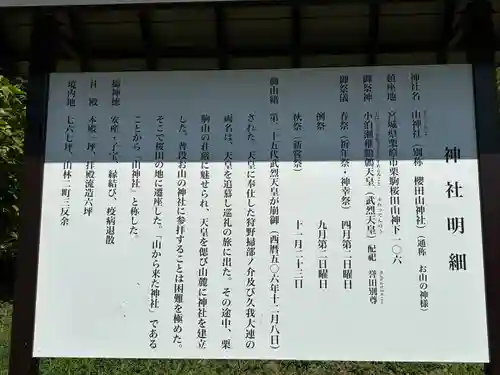 神社明細
神社名　山神社（別称　櫻田山神社）（通称　お山の神様）
鎮座地　宮城県栗原市栗駒桜田山神下一〇六
御祭神　小泊瀬稚鷦鷯天皇（武烈天皇）配祀　誉田別尊
御祭儀　春祭（祈年祭・神幸祭）四月第二日曜日
例祭　九月第二日曜日
秋祭（新嘗祭）十一月二十三日
御由緒　第二十五代武烈天皇が崩御（西暦五〇六年十二月八日）
された、天皇に奉仕した狩野掃部ノ介及び久我大連の
両名は、天皇を追慕し巡礼の旅に出た。その途中、栗
駒山の荘厳に魅せられ、天皇を偲び山麓に神社を建立
した。普段お山の神社に参拝することは困難を極めた。
そこで桜田の地に遷座した。「山から来た神社」である
ことから「山神社」と称した。
御神徳　安産・子宝・縁結び、疫病退散
社殿　本殿一坪、拝殿流造六坪
境内地　七六七坪、山林二町三反余